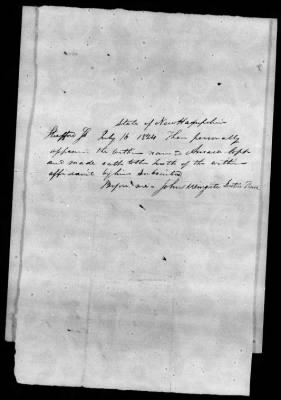 State of New Hampshire
Strafford Ss July 16 1824 Then personally
appeared the within named
and made oath to the truth of the within
affidavit by him subscribed
Before me John Justice Peace